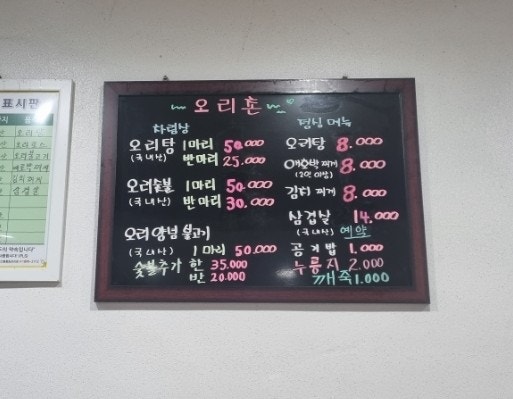 표시판
오리탕
오리로스
오리불고기
김치찌개
삼겹살
오리촌
차림상
오리탕 1마리 50.000
(국내산) 반마리 25.000
오리숯불 1마리 50.000
(국내산) 반마리 30.000
오리 양념 불고기
(국내산) 1마리 50.000
숯불추가 한 35.000
반 20.000
점심 메뉴
오리탕 8.000
애호박찌개 8.000
(2인 이상)
김치 찌개 8.000
삼겹살 14.000
(국내산) 예약
공기밥 1.000
누룽지 2.000
깨죽 1.000